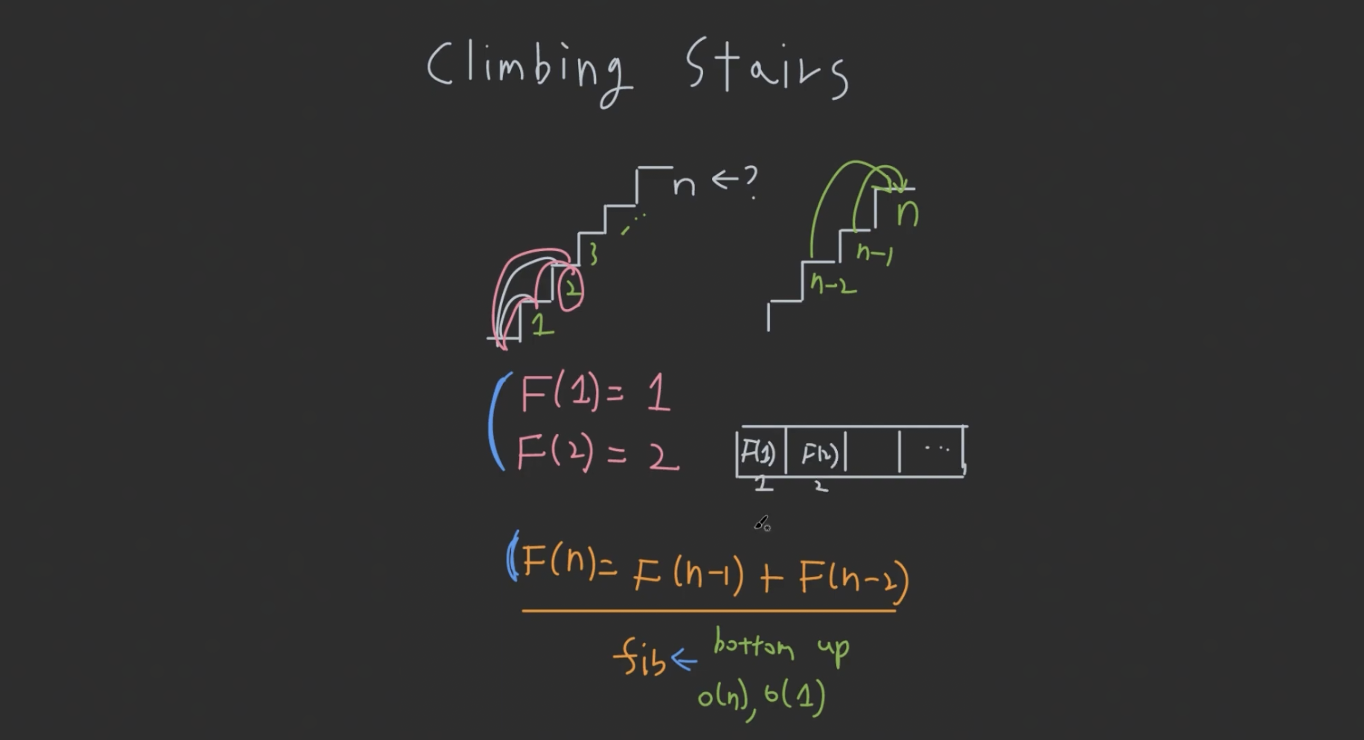 Climbing Stairs
n ←?
3
2
1
n
n-1
n-2
F(1)= 1
F(2)= 2
F(1) F(2) ...
1 2
F(n)= F(n-1) + F(n-2)
fib ← bottom up
O(n), O(1)